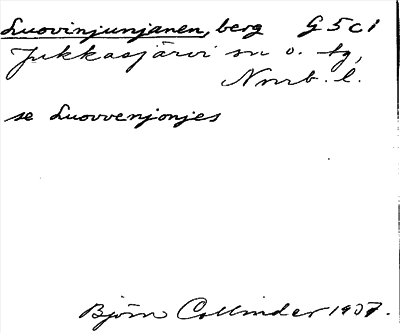 Luovinjunjanen, berg G5c1
Jukkasjärvi sn o. tg,
Nrrb. l.
se Luovvenjonjes
Björn Collinder 1937.